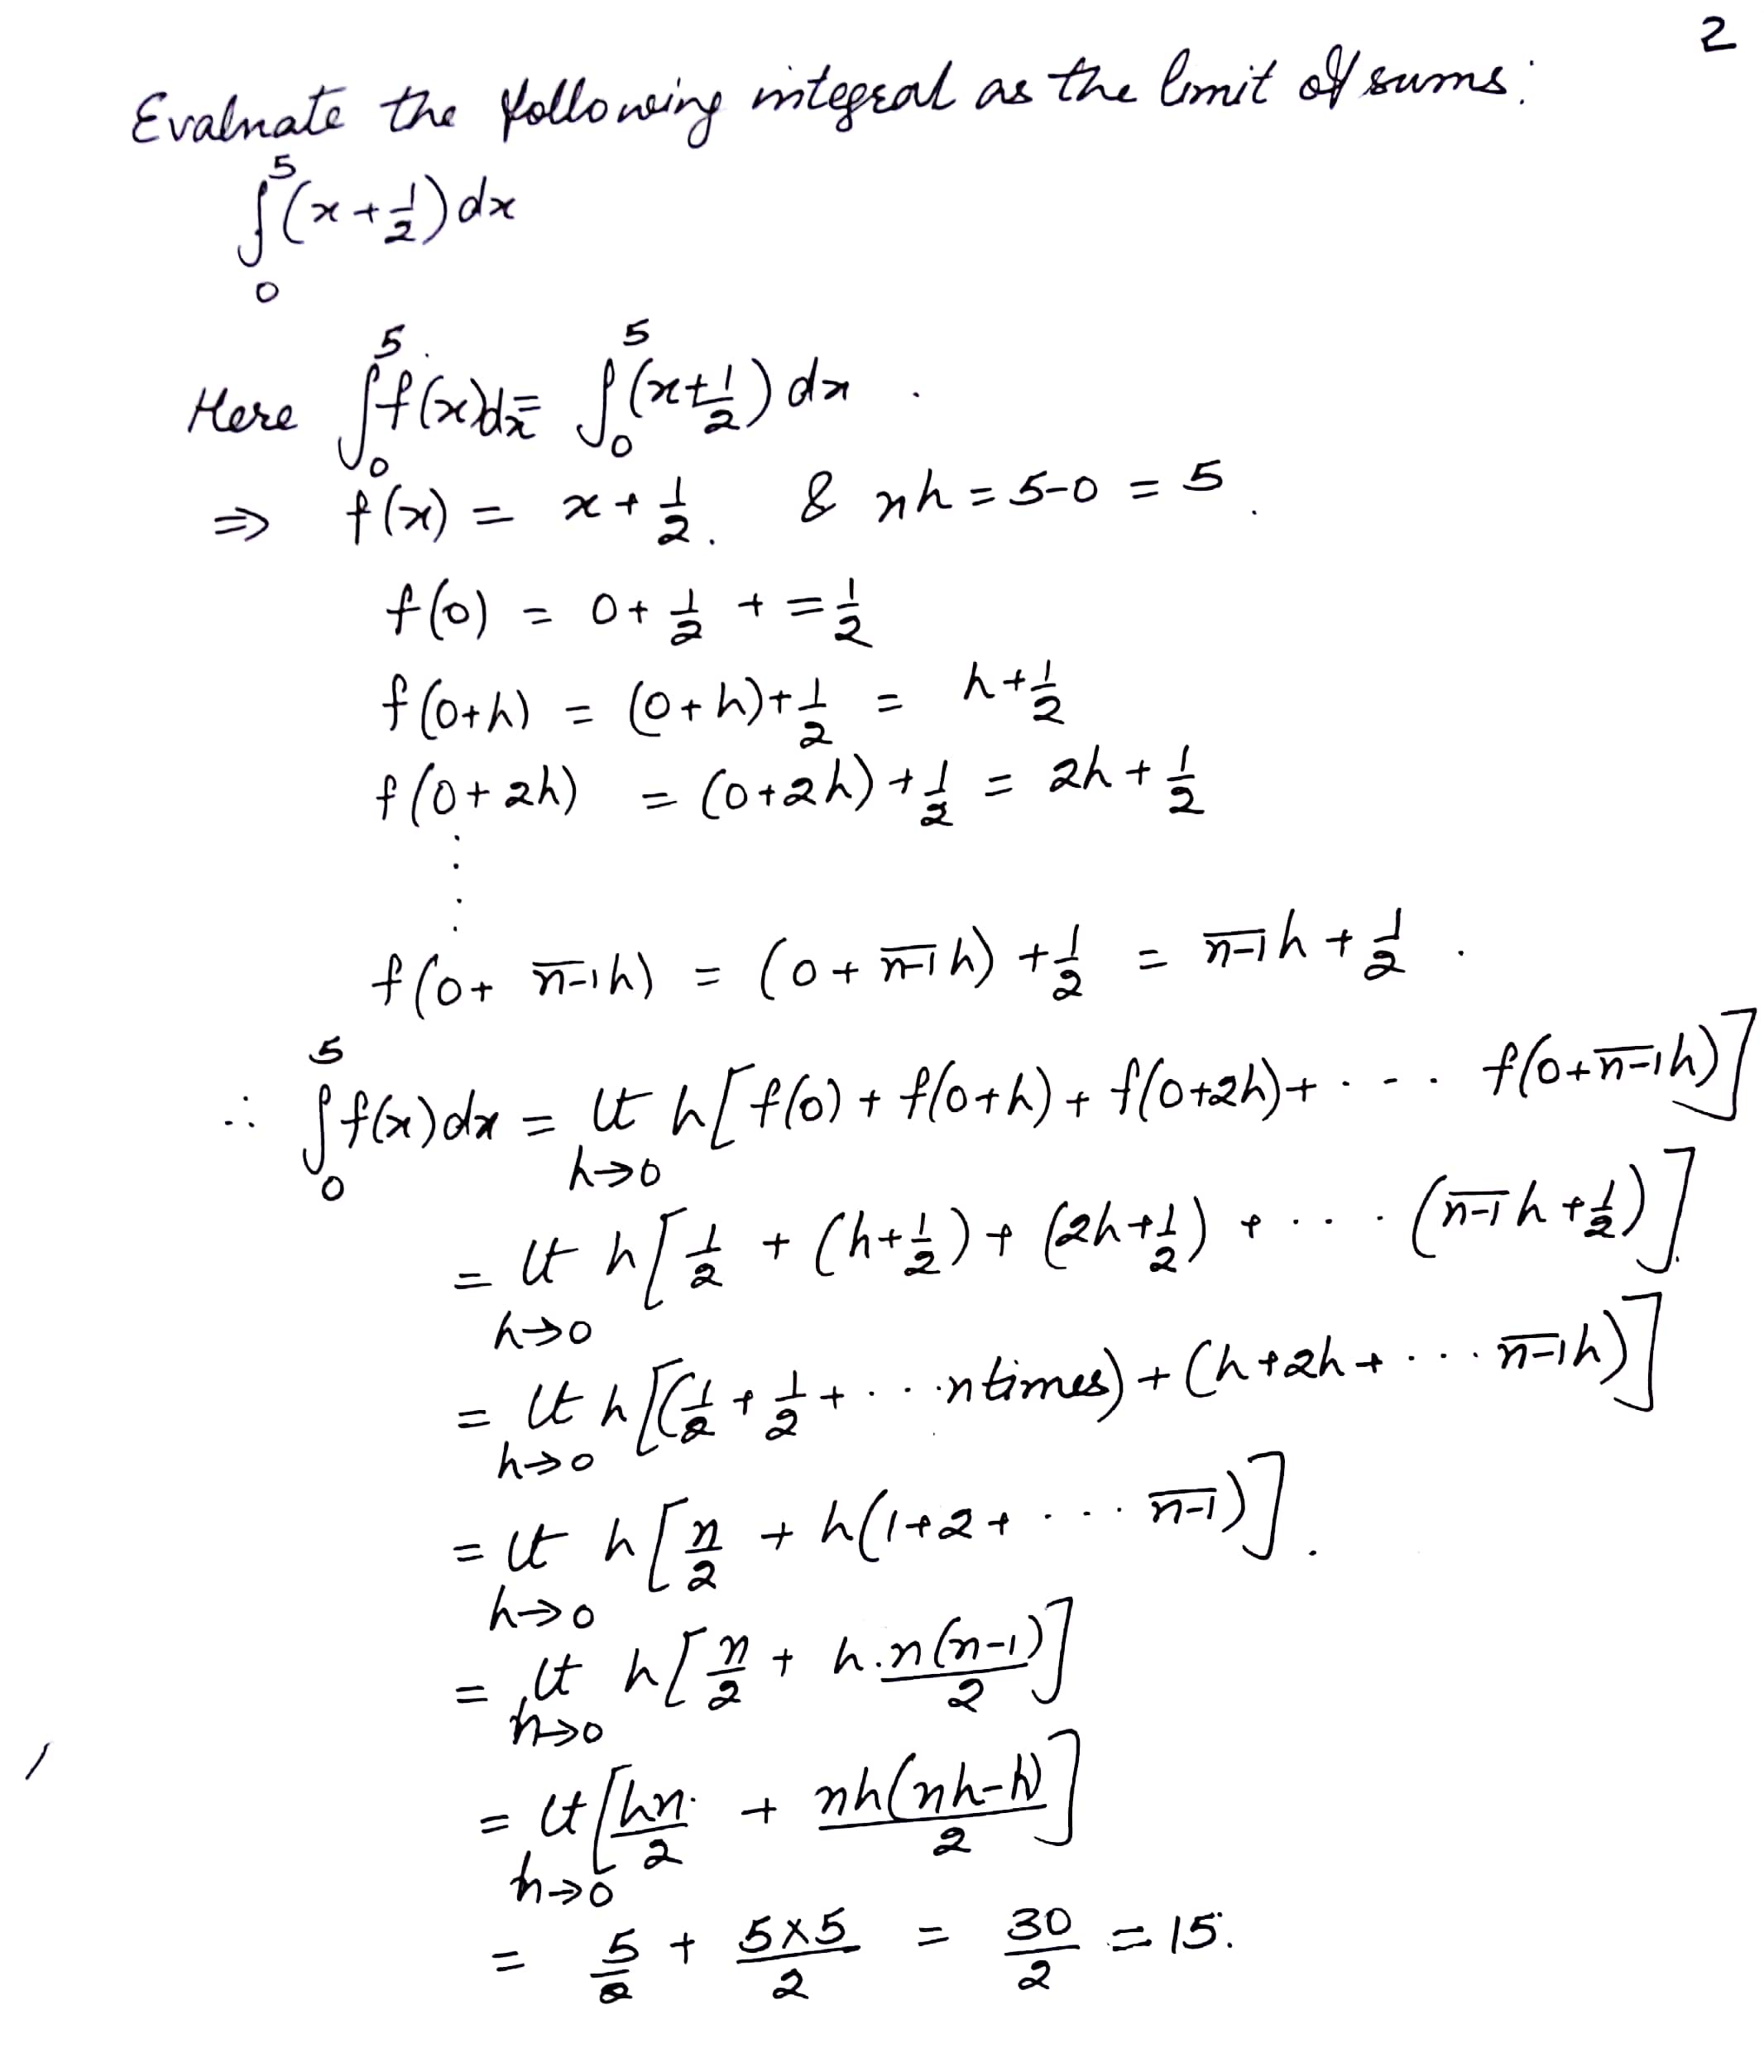 2
Evaluate the following integral as the limit of sums:
∫₀⁵ (x + 1/2) dx
Here ∫₀⁵ f(x)dx = ∫₀⁵ (x + 1/2) dx .
⇒ f(x) = x + 1/2. & nh = 5-0 = 5.
f(0) = 0 + 1/2 + = 1/2
f(0+h) = (0+h) + 1/2 = h + 1/2
f(0+2h) = (0+2h) + 1/2 = 2h + 1/2
⋮
f(0+ n̅-̅1̅h) = (0 + n̅-̅1̅h) + 1/2 = n̅-̅1̅h + 1/2 .
∴ ∫₀⁵ f(x)dx = lt h→0 h[f(0) + f(0+h) + f(0+2h) + .... f(0+n̅-̅1̅h)]
= lt h→0 h[1/2 + (h+1/2) + (2h+1/2) + .... (n̅-̅1̅h + 1/2)]
= lt h→0 h[(1/2 + 1/2 + ... n times) + (h+2h+ .... n̅-̅1̅h)]
= lt h→0 h[n/2 + h(1+2+ .... n̅-̅1̅)].
= lt h→0 h[n/2 + h.n(n-1)/2]
= lt h→0 [hn/2 + nh(nh-h)/2]
= 5/2 + 5×5/2 = 30/2 = 15.